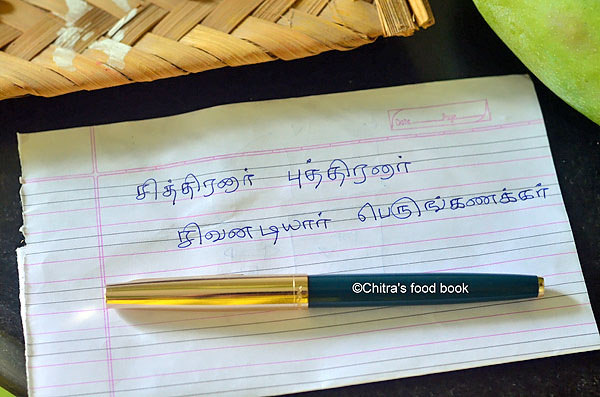 Date Page
சித்திரனார் புத்திரனார்
சிவனடியார் பெருங்கணக்கர்
©Chitra's food book